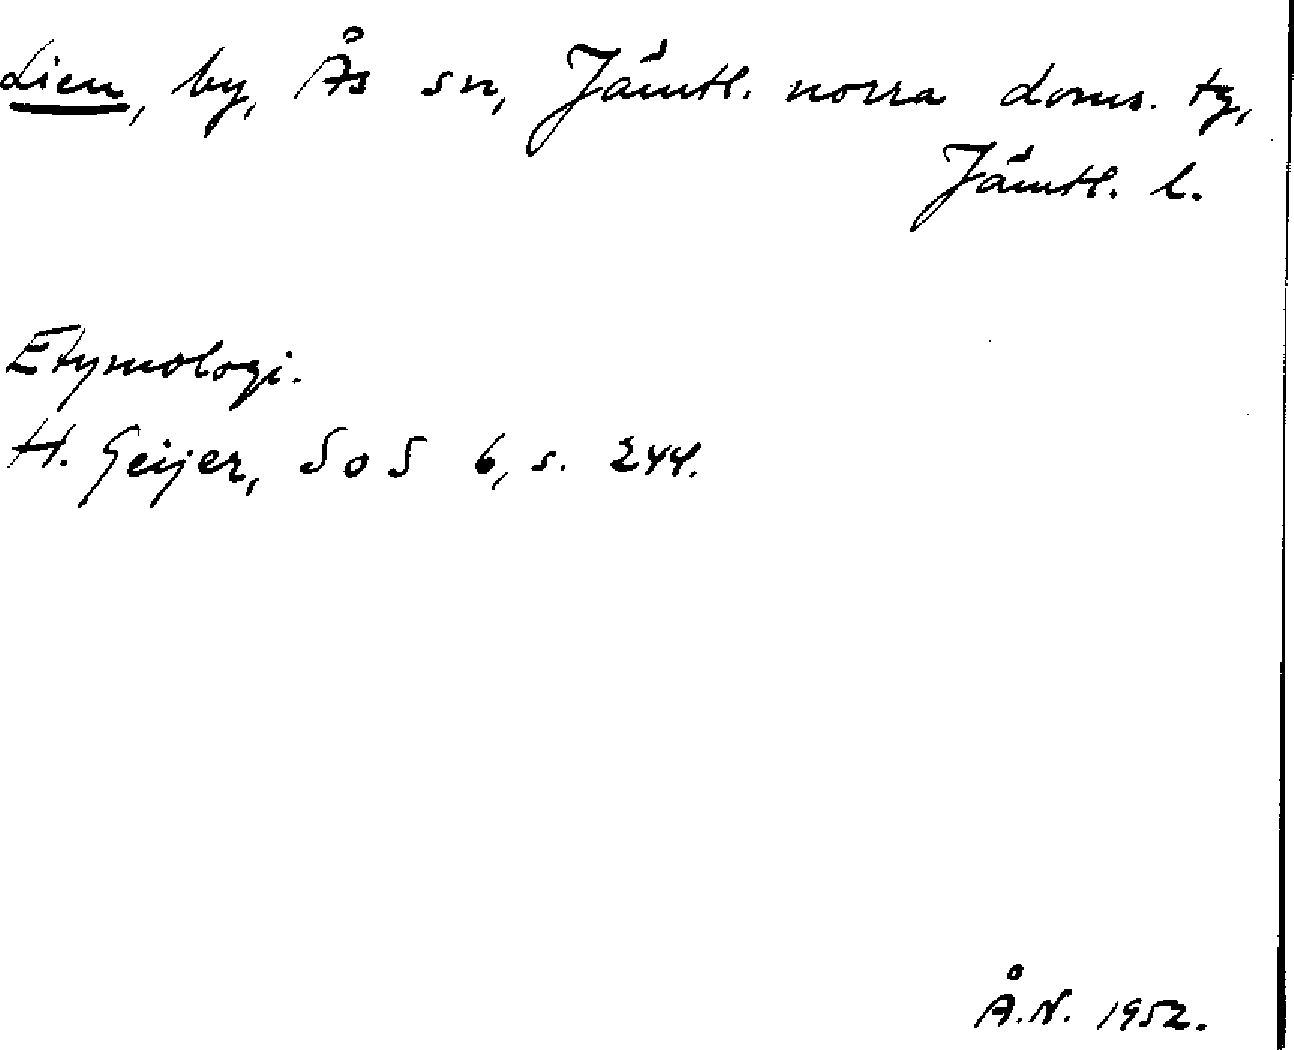 Lien, by, Ås sn, Jämtl. norra doms. tg,
Jämtl. l.
Etymologi.
H. Geijer, SoS 6, s. 244.
Å.N. 1952.